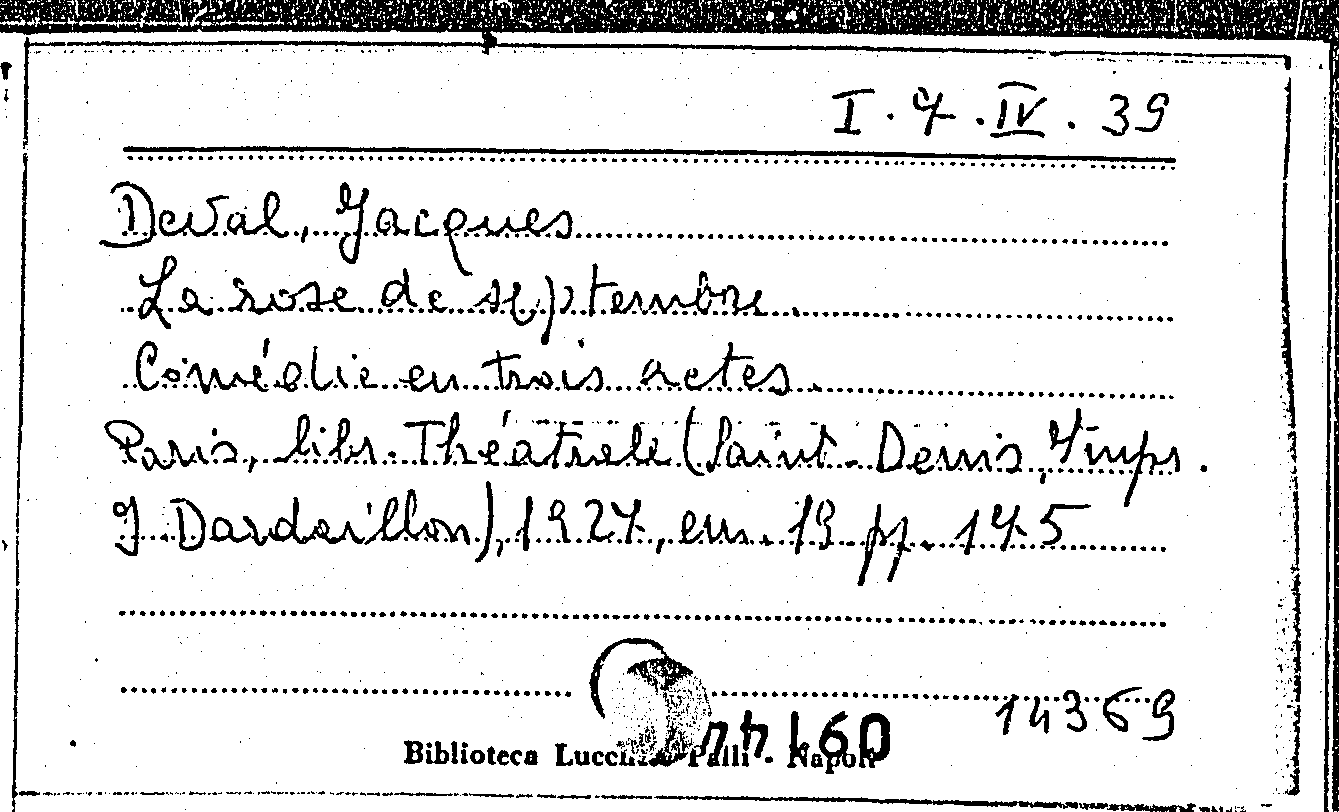 I. 7. IV. 39
Deval, Jacques
La rose de septembre.
Comédie en trois actes.
Paris, libr. Théatrale (Saint-Denis, Imps.
J. Dardaillon), 1927, em. 19 pp. 175
14369
Biblioteca Lucchesi Palli - Napoli